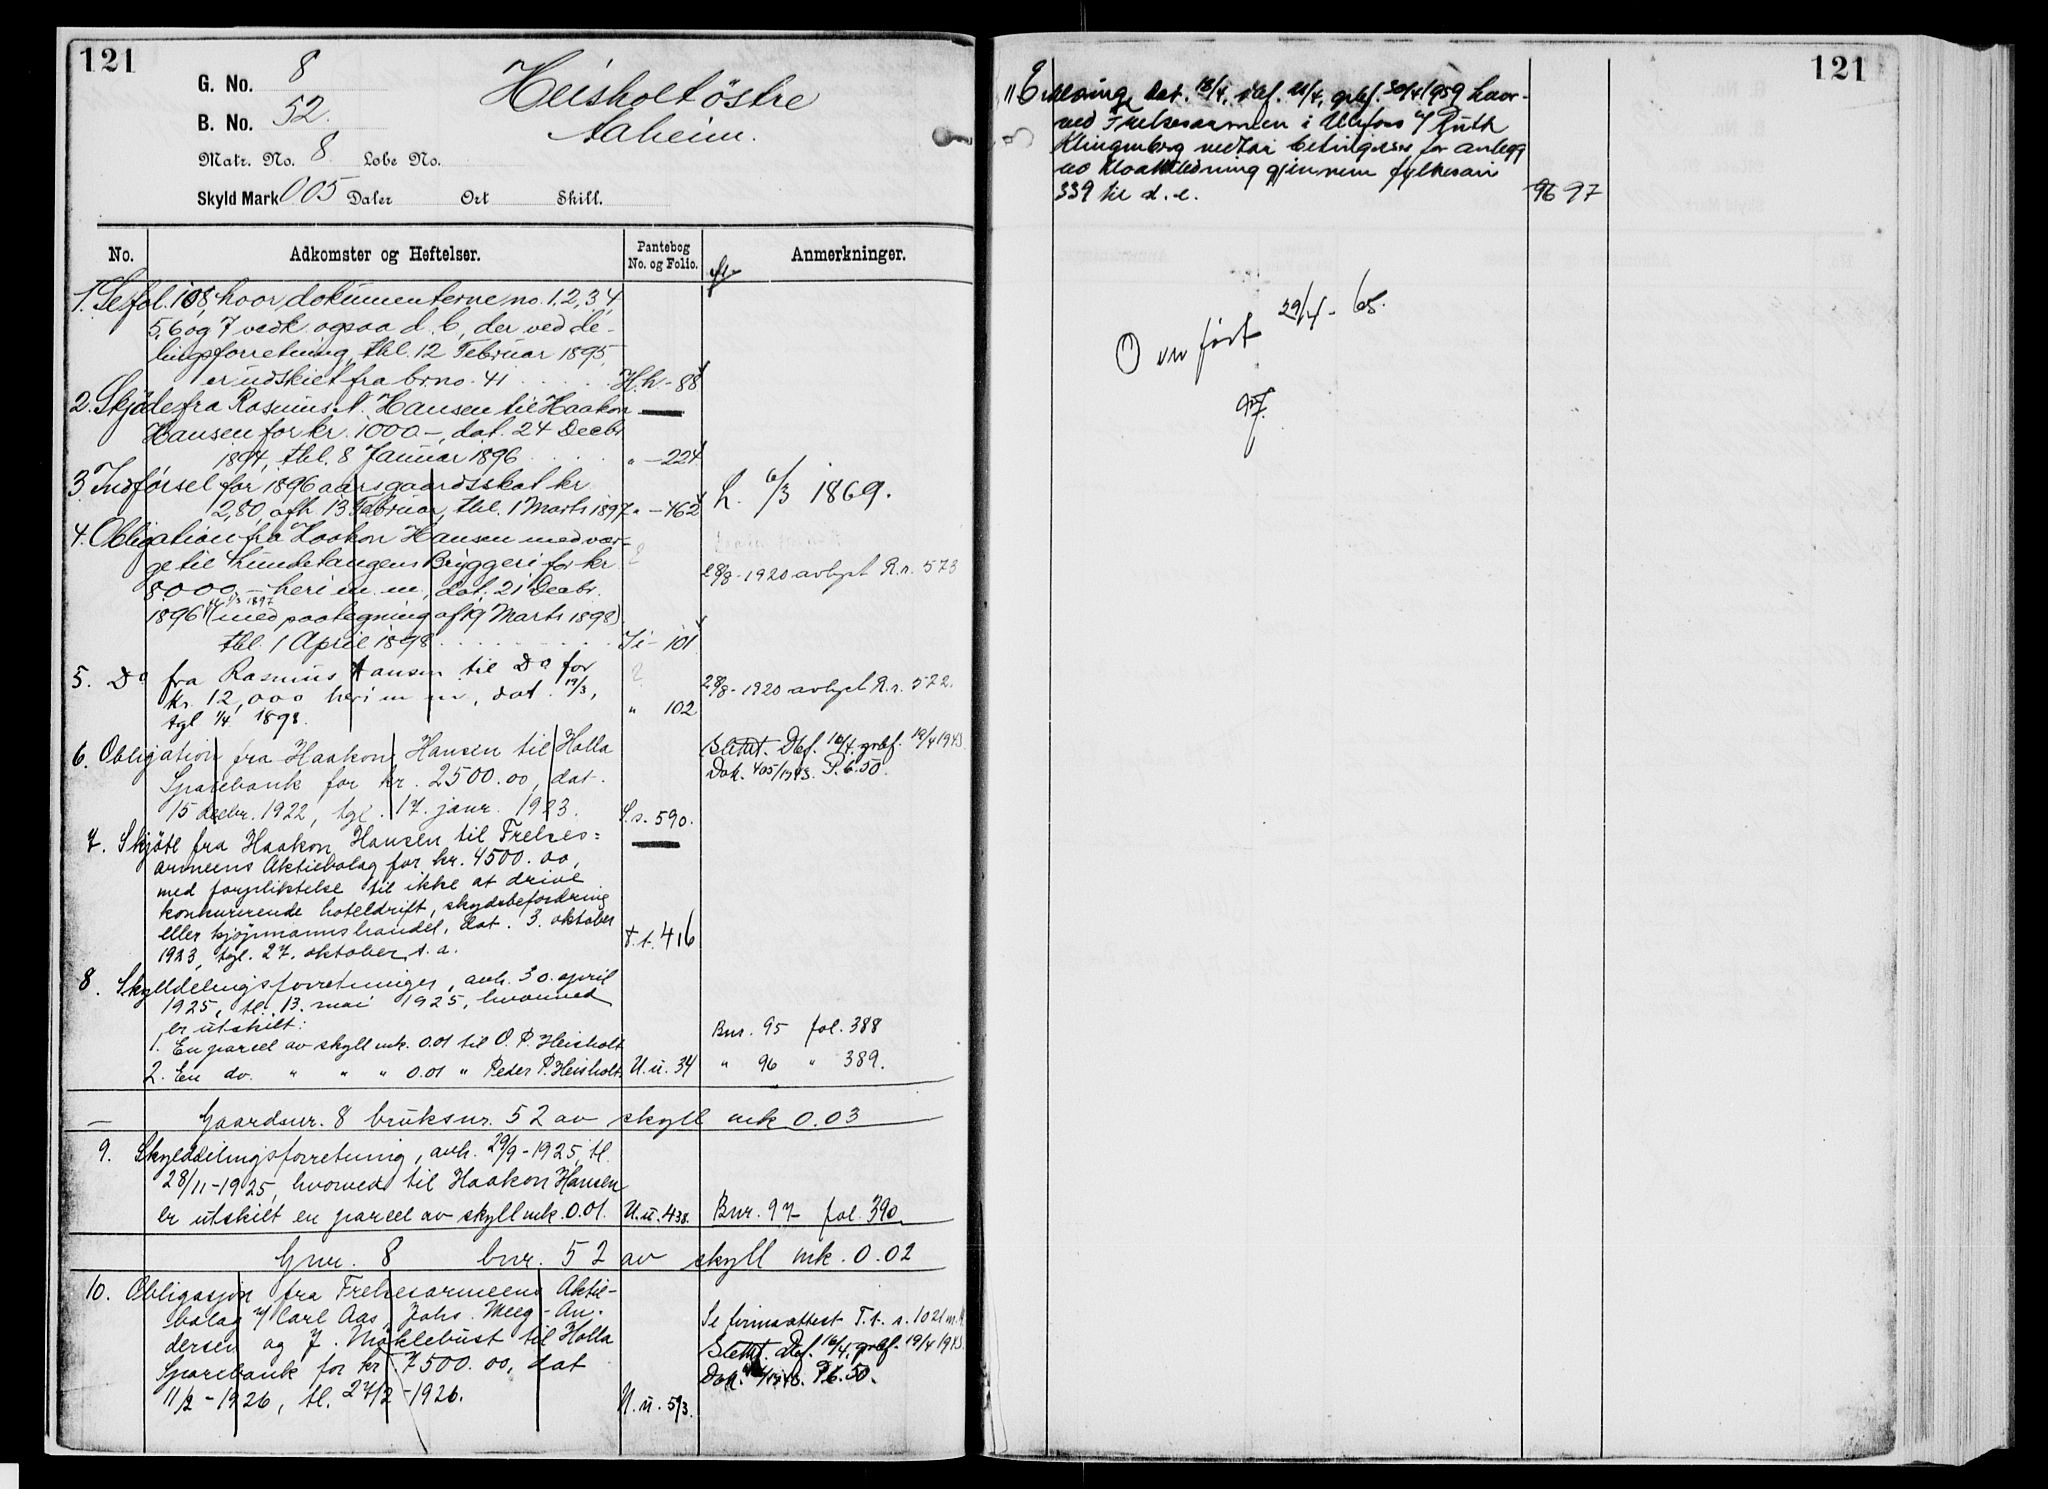 121
G. No. 8
B. No. 52.
Matr. No. 8 Løbe No.
Skyld Mark 0 05 Daler Ort Skill.
Heisholt östre
Aaheim.
No. Adkomster og Heftelser. Pantebog No. og Folio. Anmerkninger.
1. Se fol. 108, hvor dokumenterne no. 1, 2, 3, 4,
5, 6 og 7 vedk. ogsaa d. b., der ved de-
lingsforretning, thl. 12 Februar 1895,
er udskilt fra brno. 41 H.h - 88
2. Skjöde fra Rasmus N. Hansen til Haakon
Hansen for kr. 1000 -, dat. 24 Decbr
1894, thl. 8 Januar 1896 " - 224
3 Indförsel for 1896 aars gaardsskat kr
2,80, afh 13 Februar, thl. 1 Marts 1897 " - 462 L. 6/3 1869.
4. Obligation fra Haakon Hansen med vær-
ge til Lundetangens Bryggeri for kr 28/8 - 1920 avlyst R.r. 573
8000 - heri m. m., dat. 21 Decbr.
1896, tl 1/3 1897 (med paategning af 19 Marts 1898)
thl. 1 April 1898 I i - 101
5. Do fra Rasmus Hansen til Do for
kr. 12,000 heri m m, dat. 19/3, 28/8 - 1920 avlyst R.r. 572.
tgl 1/4 1898. " 102
6. Obligation fra Haakon Hansen til Holla Slettet. Dbf. 16/4, grbf. 19/4 1943.
Sparebank for kr. 2500.00, dat. Dok. 405/1943. P.b. 50.
15 decbr. 1922, tgl. 17. janr. 1923. S.s. 590.
7. Skjöte fra Haakon Hansen til Frelses=
armeens Aktiebolag for kr. 4500.00,
med forpliktelse til ikke at drive
konkurerende hoteldrift, skydsbefordring
eller kjöpmannshandel, dat. 3. oktober
1923, tgl. 27. oktober s. a. T. t. 416
8. Skylddelingsforretninger, avh. 30. april
1925, tl. 13. mai 1925, hvorved
er utskilt:
1. En parcel av skyll mk. 0.01 til O. P. Heisholt Bnr. 95 fol. 388
2. En do. " " " 0.01 " Peder P. Heisholt. U. u. 34 " 96 " 389.
— Gaardsnr. 8 bruksnr. 52 av skyll mk 0.03
9. Skylddelingsforretning, avh. 29/9 - 1925, tl.
28/11 - 1925, hvorved til Haakon Hansen
er utskilt en parcel av skyll mk. 0.01. U. u. 438. Bnr. 97 fol. 390
Gnr. 8 bnr. 52 av skyll mk. 0.02
10. Obligasjon fra Frelsesarmeens Aktie-
bolag v/ Carl Aas, Johs. Meeg-An- Se firmaattest T. t. s. 1021 m. M
dersen og J. Myklebust til Holla Slettet. Dbf. 16/4, grbf. 19/4 1943.
Sparebank for kr. 7500.00, dat P.b. 50.
11/2 - 1926, tl. 27/2 - 1926. U. u. 573.
121
11 Erklæring dat. 18/4, dbf. 28/4, grbf. 30/4 1959 hvor-
ved Frelsesarmeen i Ulefoss v/ Ruth
Klingenberg vedtar betingelser for anlegg
av kloakkledning gjennem fylkesvei
339 til d. e. 96 97
Overfört 29/4 - 65.